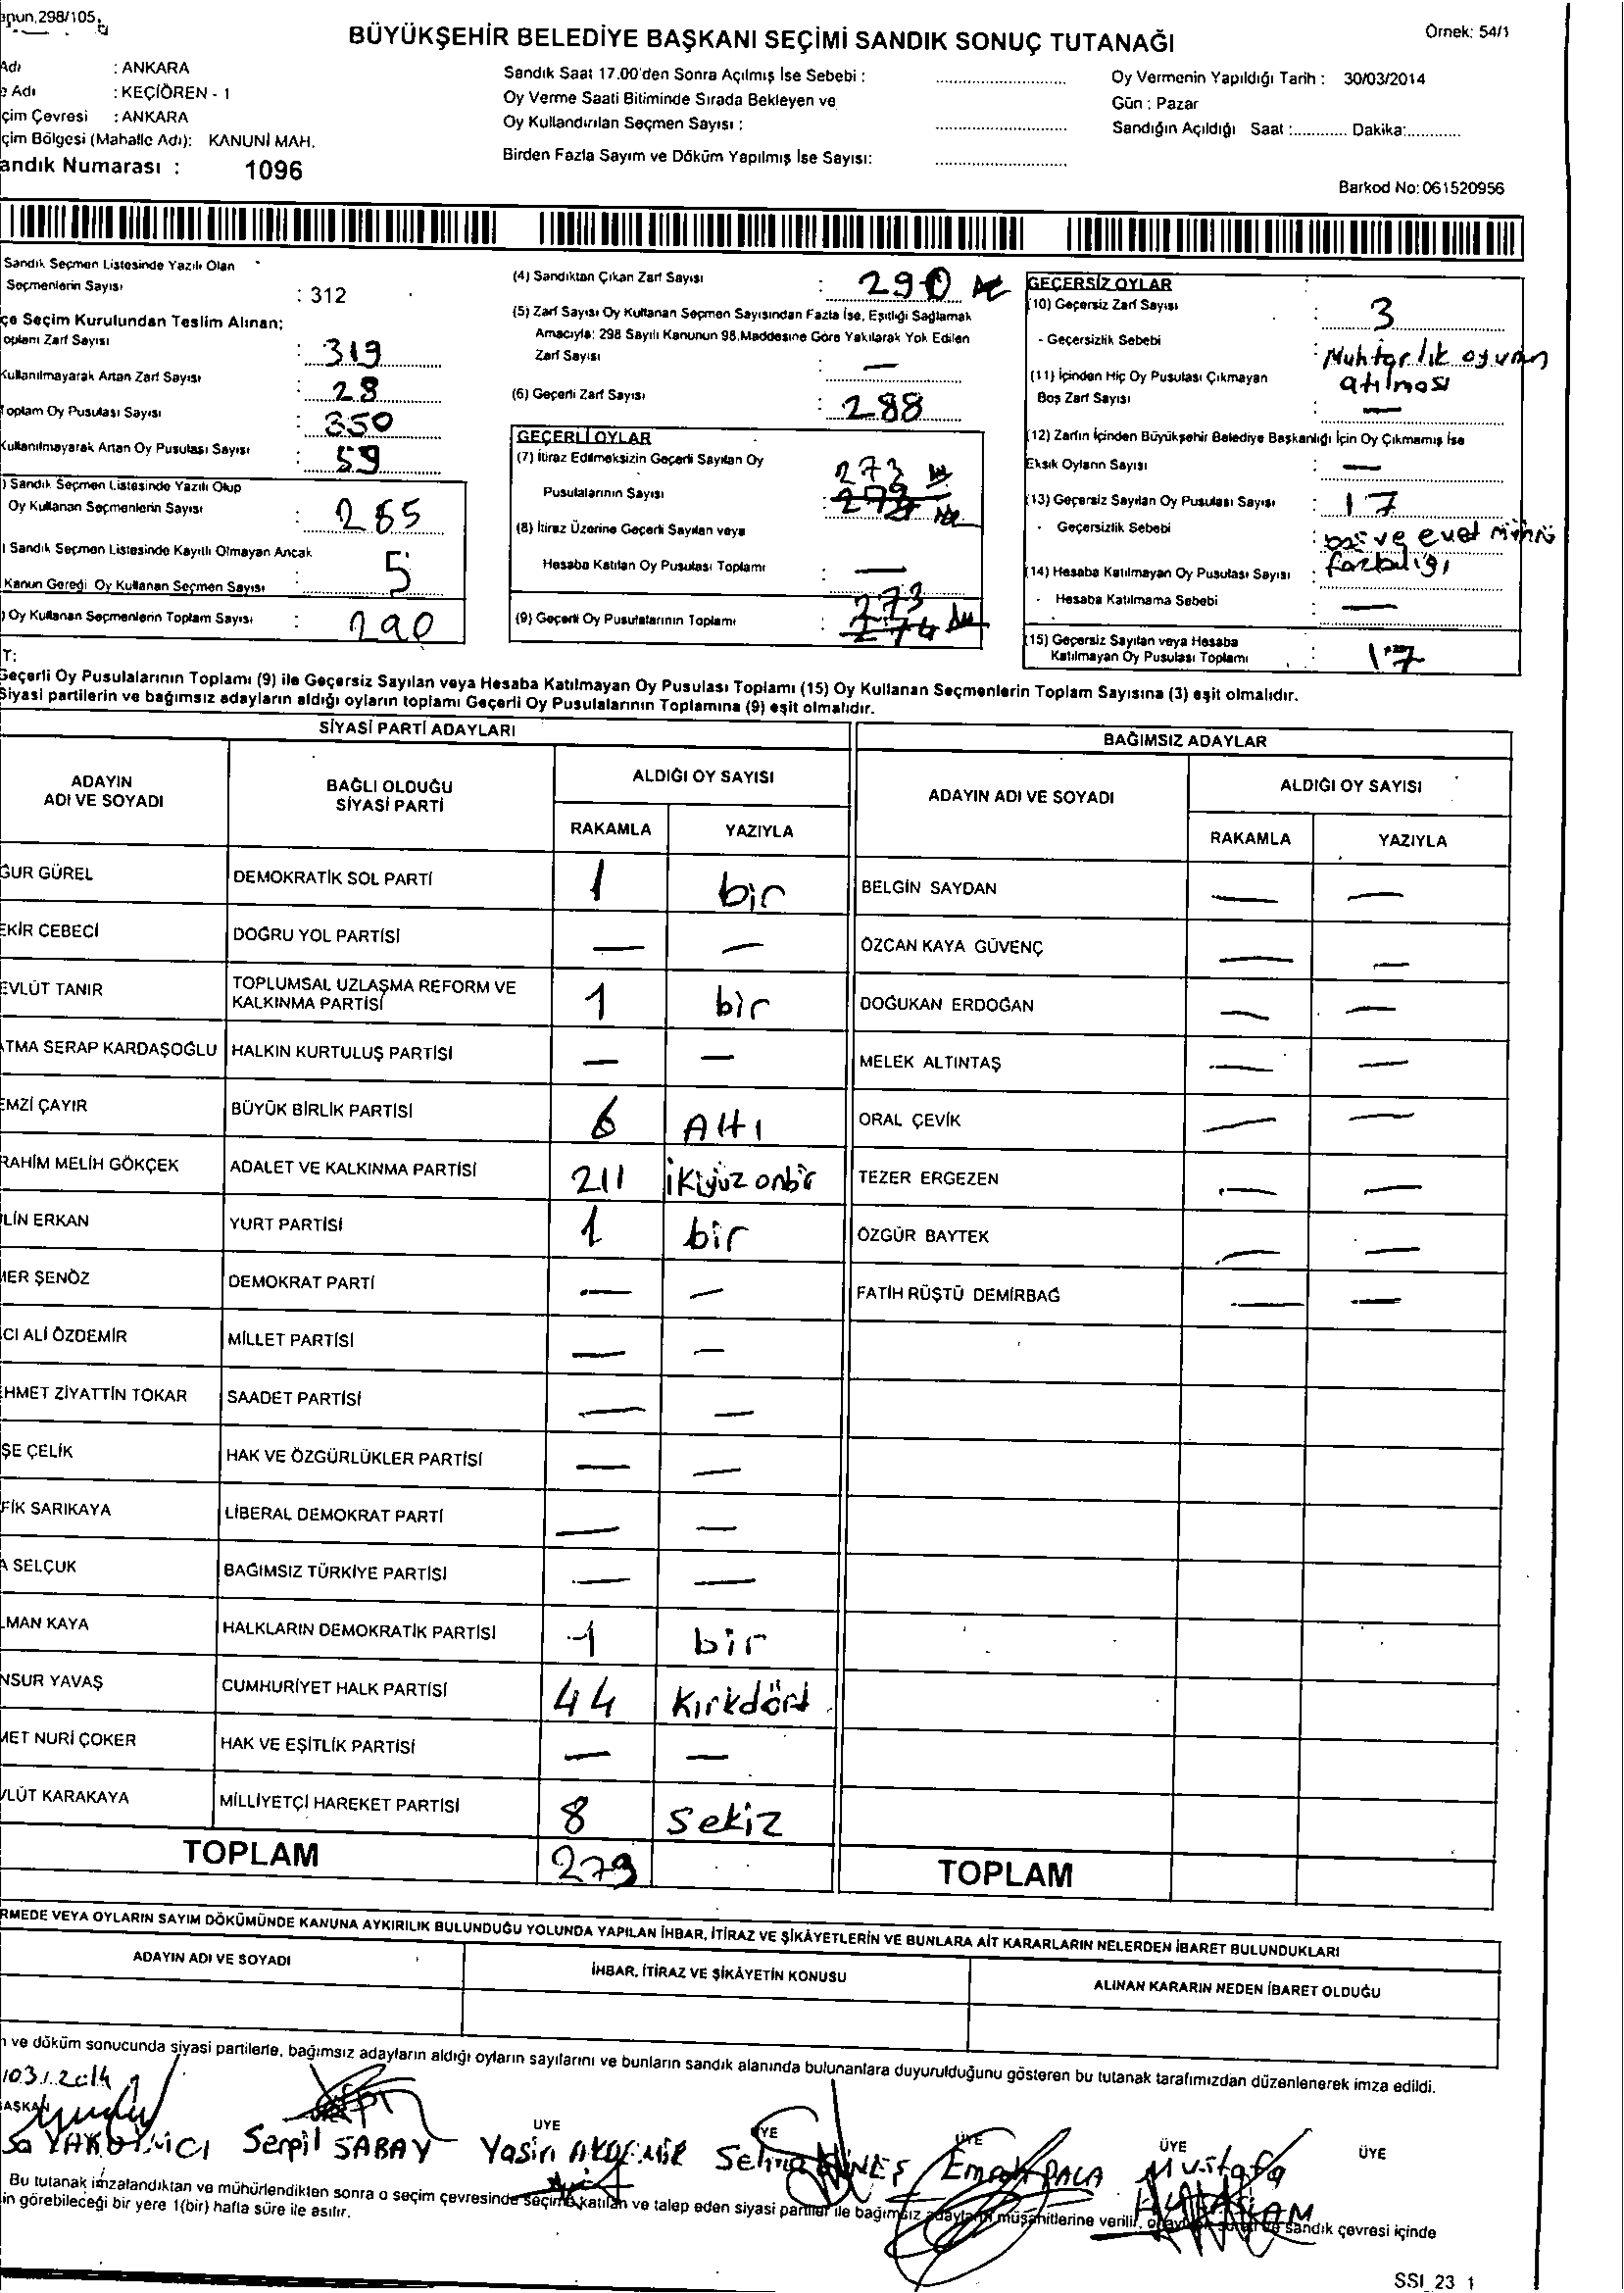 298/105
Örnek: 54/1
BÜYÜKŞEHİR BELEDİYE BAŞKANI SEÇİMİ SANDIK SONUÇ TUTANAĞI
Adı : ANKARA
Adı : KEÇİÖREN - 1
çim Çevresi : ANKARA
çim Bölgesi (Mahalle Adı): KANUNİ MAH.
andık Numarası : 1096
Sandık Saat 17.00'den Sonra Açılmış İse Sebebi :
Oy Verme Saati Bitiminde Sırada Bekleyen ve
Oy Kullandırılan Seçmen Sayısı :
Birden Fazla Sayım ve Döküm Yapılmış İse Sayısı:
Oy Vermenin Yapıldığı Tarih : 30/03/2014
Gün : Pazar
Sandığın Açıldığı Saat :............ Dakika:............
Barkod No: 061520956
Sandık Seçmen Listesinde Yazılı Olan
Seçmenlerin Sayısı : 312
çe Seçim Kurulundan Teslim Alınan;
oplam Zarf Sayısı : 319
Kullanılmayarak Artan Zarf Sayısı : 28
Toplam Oy Pusulası Sayısı : 350
Kullanılmayarak Artan Oy Pusulası Sayısı : 59
) Sandık Seçmen Listesinde Yazılı Olup
Oy Kullanan Seçmenlerin Sayısı : 285
) Sandık Seçmen Listesinde Kayıtlı Olmayan Ancak
Kanun Gereği Oy Kullanan Seçmen Sayısı : 5
) Oy Kullanan Seçmenlerin Toplam Sayısı : 290
(4) Sandıktan Çıkan Zarf Sayısı : 290
(5) Zarf Sayısı Oy Kullanan Seçmen Sayısından Fazla İse, Eşitliği Sağlamak
Amacıyla; 298 Sayılı Kanunun 98.Maddesine Göre Yakılarak Yok Edilen
Zarf Sayısı : —
(6) Geçerli Zarf Sayısı : 288
GEÇERLİ OYLAR
(7) İtiraz Edilmeksizin Geçerli Sayılan Oy
Pusulalarının Sayısı : 273
(8) İtiraz Üzerine Geçerli Sayılan veya
Hesaba Katılan Oy Pusulası Toplamı : —
(9) Geçerli Oy Pusulalarının Toplamı : 273 274
GEÇERSİZ OYLAR
(10) Geçersiz Zarf Sayısı : 3
- Geçersizlik Sebebi : Muhtarlık oyunun
atılması
(11) İçinden Hiç Oy Pusulası Çıkmayan
Boş Zarf Sayısı : —
(12) Zarfın İçinden Büyükşehir Belediye Başkanlığı İçin Oy Çıkmamış İse
Eksik Oyların Sayısı : —
(13) Geçersiz Sayılan Oy Pusulası Sayısı : 17
- Geçersizlik Sebebi : boş ve evet mührü
fazlalığı
(14) Hesaba Katılmayan Oy Pusulası Sayısı :
- Hesaba Katılmama Sebebi : —
(15) Geçersiz Sayılan veya Hesaba
Katılmayan Oy Pusulası Toplamı : 17
T:
Geçerli Oy Pusulalarının Toplamı (9) ile Geçersiz Sayılan veya Hesaba Katılmayan Oy Pusulası Toplamı (15) Oy Kullanan Seçmenlerin Toplam Sayısına (3) eşit olmalıdır.
Siyasi partilerin ve bağımsız adayların aldığı oyların toplamı Geçerli Oy Pusulalarının Toplamına (9) eşit olmalıdır.
SİYASİ PARTİ ADAYLARI
ADAYIN
ADI VE SOYADI
BAĞLI OLDUĞU
SİYASİ PARTİ
ALDIĞI OY SAYISI
RAKAMLA YAZIYLA
ĞUR GÜREL DEMOKRATİK SOL PARTİ 1 bir
EKİR CEBECİ DOĞRU YOL PARTİSİ — —
EVLÜT TANIR TOPLUMSAL UZLAŞMA REFORM VE
KALKINMA PARTİSİ 1 bir
ATMA SERAP KARDAŞOĞLU HALKIN KURTULUŞ PARTİSİ — —
EMZİ ÇAYIR BÜYÜK BİRLİK PARTİSİ 6 Altı
RAHİM MELİH GÖKÇEK ADALET VE KALKINMA PARTİSİ 211 ikiyüz onbir
LİN ERKAN YURT PARTİSİ 1 bir
MER ŞENÖZ DEMOKRAT PARTİ — —
CI ALİ ÖZDEMİR MİLLET PARTİSİ — —
EHMET ZİYATTİN TOKAR SAADET PARTİSİ — —
ŞE ÇELİK HAK VE ÖZGÜRLÜKLER PARTİSİ — —
FİK SARIKAYA LİBERAL DEMOKRAT PARTİ — —
A SELÇUK BAĞIMSIZ TÜRKİYE PARTİSİ — —
LMAN KAYA HALKLARIN DEMOKRATİK PARTİSİ 1 bir
NSUR YAVAŞ CUMHURİYET HALK PARTİSİ 44 Kırkdört
MET NURİ ÇOKER HAK VE EŞİTLİK PARTİSİ — —
VLÜT KARAKAYA MİLLİYETÇİ HAREKET PARTİSİ 8 Sekiz
TOPLAM 273
BAĞIMSIZ ADAYLAR
ADAYIN ADI VE SOYADI
ALDIĞI OY SAYISI
RAKAMLA YAZIYLA
BELGİN SAYDAN — —
ÖZCAN KAYA GÜVENÇ — —
DOĞUKAN ERDOĞAN — —
MELEK ALTINTAŞ — —
ORAL ÇEVİK — —
TEZER ERGEZEN — —
ÖZGÜR BAYTEK — —
FATİH RÜŞTÜ DEMİRBAĞ — —
TOPLAM
RMEDE VEYA OYLARIN SAYIM DÖKÜMÜNDE KANUNA AYKIRILIK BULUNDUĞU YOLUNDA YAPILAN İHBAR, İTİRAZ VE ŞİKÂYETLERİN VE BUNLARA AİT KARARLARIN NELERDEN İBARET BULUNDUKLARI
ADAYIN ADI VE SOYADI İHBAR, İTİRAZ VE ŞİKÂYETİN KONUSU ALINAN KARARIN NEDEN İBARET OLDUĞU
ve döküm sonucunda siyasi partilerle, bağımsız adayların aldığı oyların sayılarını ve bunların sandık alanında bulunanlara duyurulduğunu gösteren bu tutanak tarafımızdan düzenlenerek imza edildi.
/03/2014
BAŞKAN ÜYE ÜYE ÜYE ÜYE ÜYE
Serpil SABAY Yasin Emrah PALA Mustafa
Bu tutanak imzalandıktan ve mühürlendikten sonra o seçim çevresinde seçime katılan ve talep eden siyasi partiler ile bağımsız adayların müşahitlerine verilir, sandık çevresi içinde
in görebileceği bir yere 1(bir) hafta süre ile asılır.
SSI_23_1